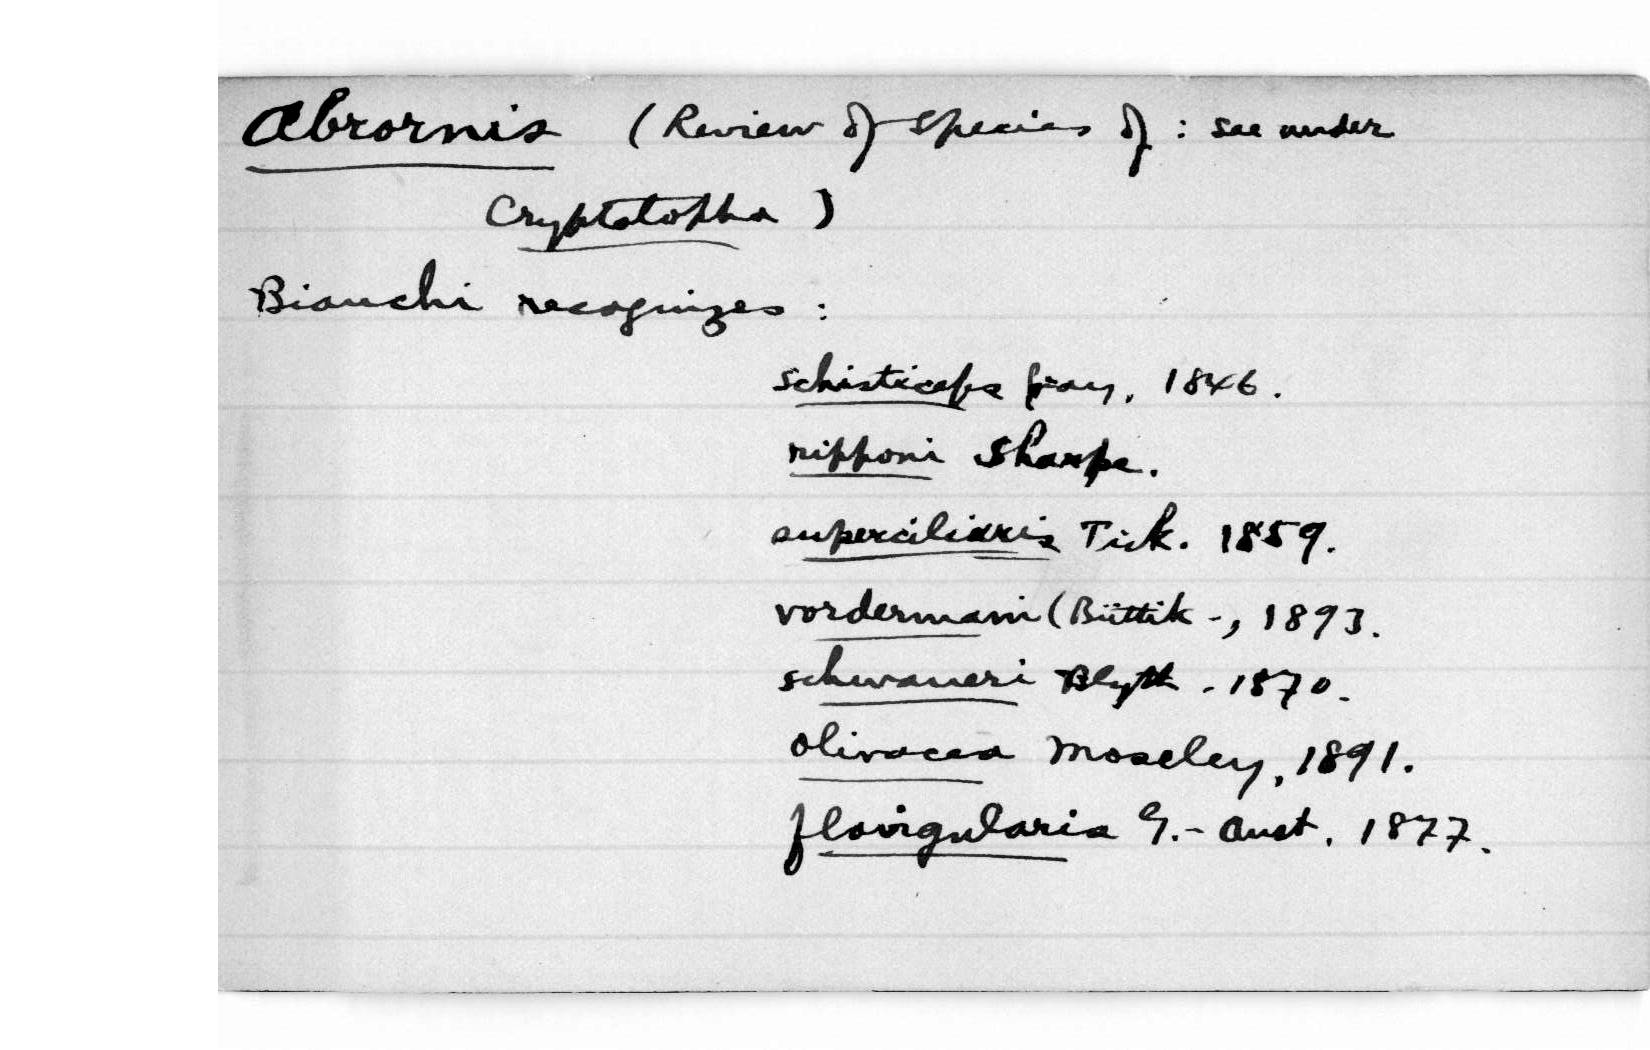 Abrornis (Review of species of : see under
Cryptolopha )
Bianchi recognizes :
schisticeps Gray, 1846.
nipponi Sharpe.
superciliaris Tick. 1859.
vordermani (Büttik-, 1893.
schwaneri Blyth. 1870.
olivacea Moseley, 1891.
flavigularis G.- Aust. 1877.